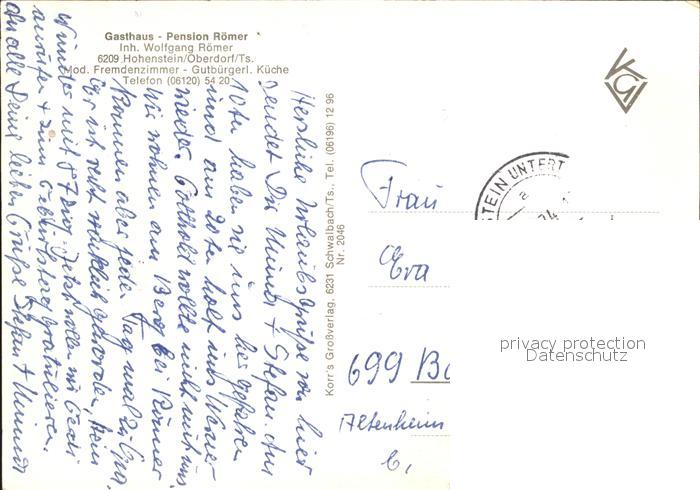 Gasthaus - Pension Römer
Inh. Wolfgang Römer
6209 Hohenstein/Oberdorf/Ts.
Mod. Fremdenzimmer - Gutbürgerl. Küche
Telefon (06120) 54 20
Herzliche Urlaubsgrüße von hier
sendet Dir Minna + Stefan. Am
10ten haben sie uns hergefahren
und am 20ten holt uns Werner
wieder. Gotthold wollte nicht mit uns
Wir wohnen am Berg bei Römer
kommen aber jeden Tag mal zu
Er ist recht
mit 87zig. Jetzt wollen wir
anrufen + zum Geburtstag gratulieren.
An alle Deine lieben Grüße Stefan + Minna
Korr's Großverlag, 6231 Schwalbach/Ts., Tel. (06196) 12 96
Nr. 2046
KGV
STEIN UNTERT
24
Frau
Eva
699 B
Altenheim
privacy protection
Datenschutz